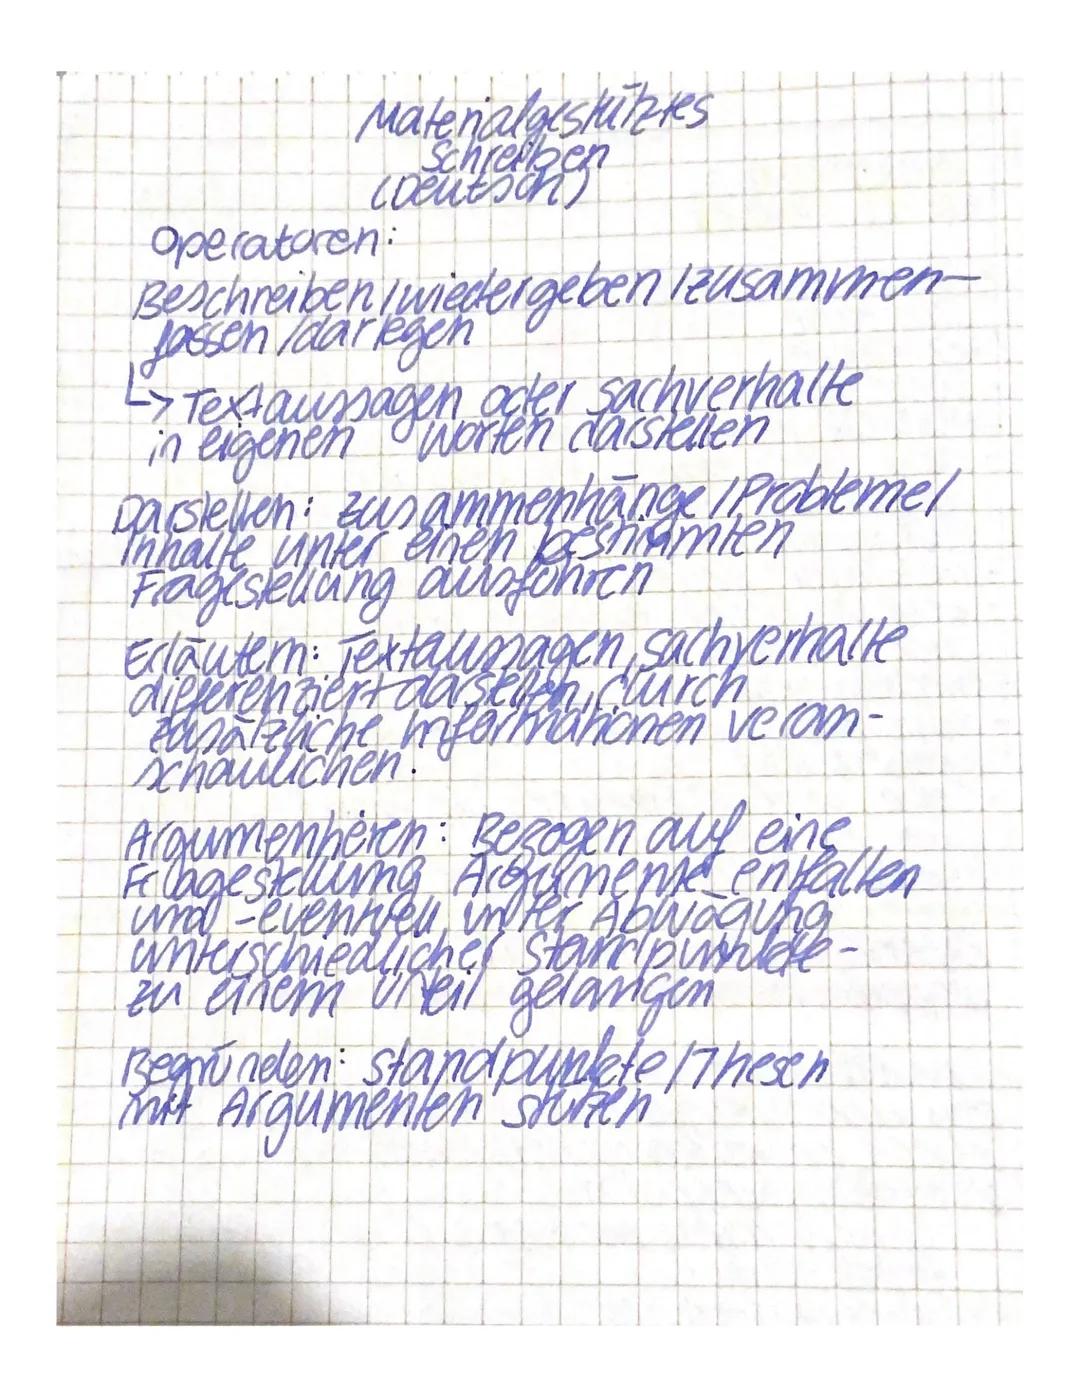 Materialgestütztes
Schreiben
(Deutsch)
Operatoren:
Beschreiben/wiedergeben/zusammen-
fassen/darlegen
↳ Textaussagen oder Sachverhalte
in eigenen Worten darstellen
Darstellen: Zusammenhänge/Probleme/
Inhalte unter einen bestimmten
Fragestellung ausführen
Erläutern: Textaussagen, Sachverhalte
differenziert darstellen, durch
zusätzliche Informationen veran-
schaulichen.
Argumentieren: Bezogen auf eine
Fragestellung Argumente entfalten
und -eventuell unter Abwägung
unterschiedlicher Standpunkte-
zu einem Urteil gelangen
Begründen: Standpunkte/Thesen
mit Argumenten stützen